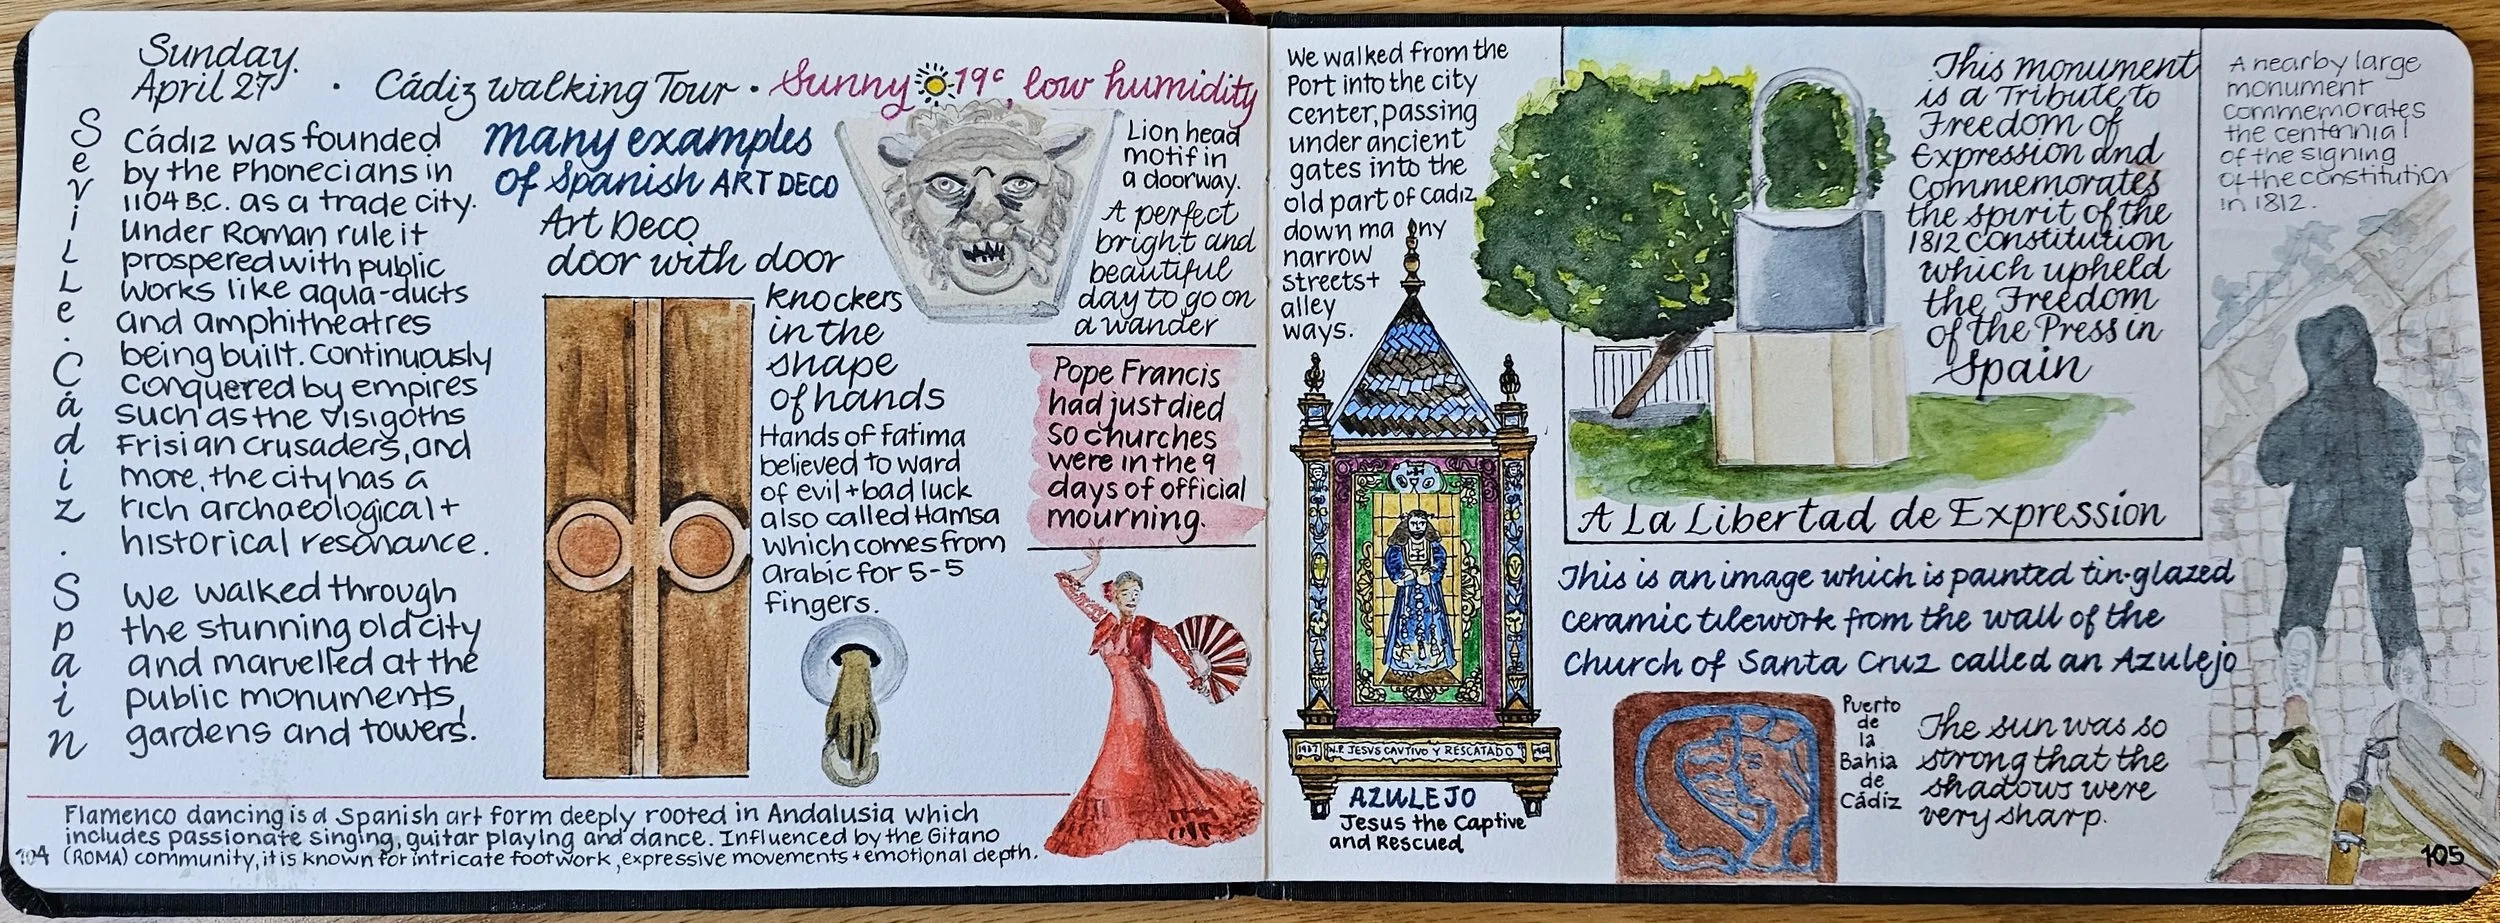 Sunday.
April 27 · Cádiz walking Tour · Sunny 19c, low humidity
Seville. Cádiz. Spain
Cádiz was founded
by the Phonecians in
1104 B.C. as a trade city.
Under Roman rule it
prospered with public
works like aqua-ducts
and amphitheatres
being built. Continuously
conquered by empires
such as the Visigoths
Frisian crusaders, and
more, the city has a
rich archaeological +
historical resonance.
We walked through
the stunning old city
and marvelled at the
public monuments,
gardens and towers.
many examples
of Spanish ART DECO
Art Deco
door with door
knockers
in the
shape
of hands
Hands of Fatima
believed to ward
of evil + bad luck
also called Hamsa
which comes from
Arabic for 5-5
fingers.
Lion head
motif in
a doorway.
A perfect
bright and
beautiful
day to go on
a wander
Pope Francis
had just died
so churches
were in the 9
days of official
mourning.
Flamenco dancing is a Spanish art form deeply rooted in Andalusia which
includes passionate singing, guitar playing and dance. Influenced by the Gitano
(ROMA) community, it is known for intricate footwork, expressive movements + emotional depth.
104
We walked from the
Port into the city
center, passing
under ancient
gates into the
old part of Cadiz
down many
narrow
streets +
alley
ways.
1937 N.P. JESVS CAVTIVO Y RESCATADO
AZULEJO
Jesus the Captive
and Rescued
This monument
is a Tribute to
Freedom of
Expression and
Commemorates
the spirit of the
1812 constitution
which upheld
the Freedom
of the Press in
Spain
A La Libertad de Expression
This is an image which is painted tin-glazed
ceramic tilework from the wall of the
Church of Santa Cruz called an Azulejo
Puerto
de
la
Bahia
de
Cádiz
The sun was so
strong that the
shadows were
very sharp.
A nearby large
monument
commemorates
the centennial
of the signing
of the constitution
in 1812.
105